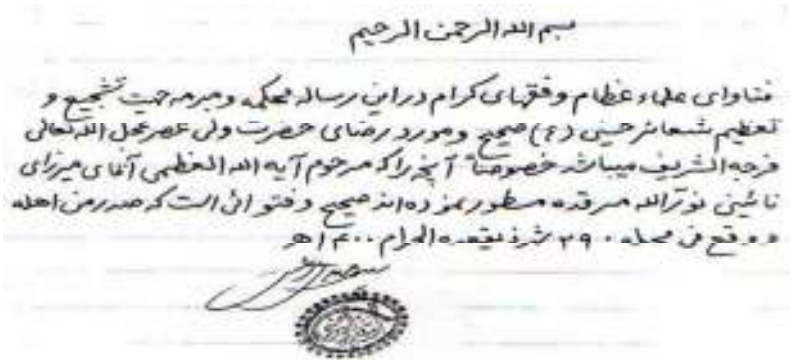 بسم الله الرحمن الرحیم
فتاوای علماء عظام و فقهای کرام در این رساله محکمه و مبرمه جهت تشجیع و
تعظیم شعائر حسینی (ع) صحیح و مورد رضای حضرت ولی عصر عجل الله تعالی
فرجه الشریف میباشد خصوصاً آنچه را که مرحوم آیه الله العظمی آقای میرزای
نائینی نورالله مرقده مسطور نموده‌اند صحیح و فتوائی است که صدر من اهله
و وقع فی محله ۲۹ ذیقعده الحرام ۱۴۰۰ هـ